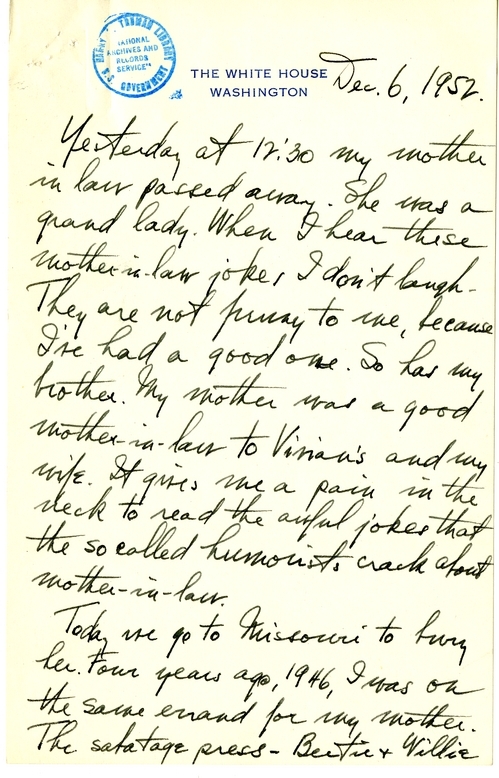 HARRY S. TRUMAN LIBRARY
"NATIONAL
ARCHIVES AND
RECORDS
SERVICE"
U.S. GOVERNMENT
THE WHITE HOUSE
WASHINGTON
Dec. 6, 1952.
Yesterday at 12:30 my mother
in law passed away. She was a
grand lady. When I hear these
mother-in-law jokes I don't laugh.
They are not funny to me, because
I've had a good one. So has my
brother. My mother was a good
mother-in-law to Vivian's and my
wife. It gives me a pain in the
neck to read the awful jokes that
the so called humorists crack about
mother-in-law.
Today we go to Missouri to bury
her. Four years ago, 1946, I was on
the same errand for my mother.
The sabatage press - Bertie & Willie